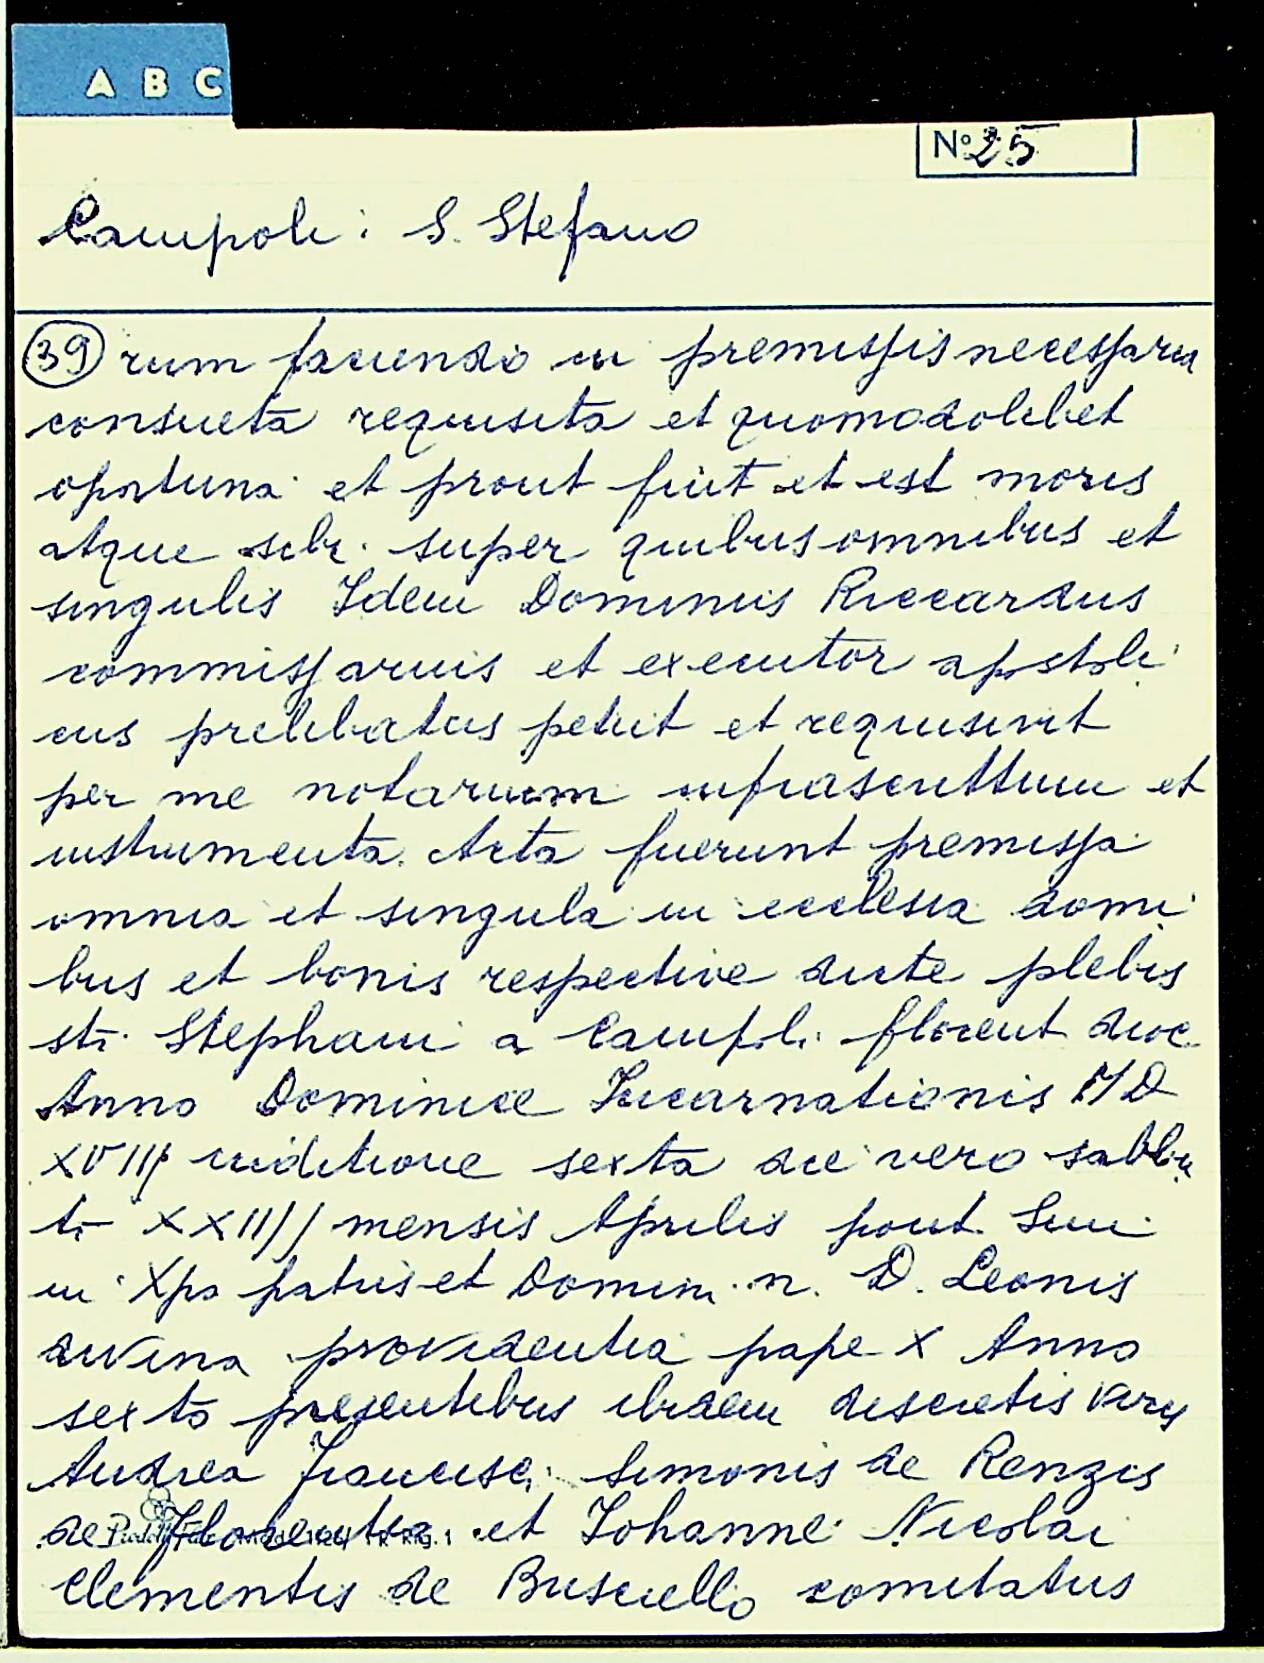 A B C
N° 25
Campoli: S. Stefano
39 rum faciendo in premissis necessaria
consueta requisita et quomodolibet
oportuna et prout fuit et est moris
atque scbr. super quibus omnibus et
singulis Idem Dominus Riccardus
commissarius et executor apostoli
cus prelibatus petiit et requisivit
per me notarium infrascrittum et
instrumenta. Acta fuerunt premissa
omnia et singula in ecclesia domi
bus et bonis respective dicte plebis
sti. Stephani a Campoli florent dioc.
Anno Dominice Incarnationis MD
XVIII inditione sexta die vero sabba
ti XXIIII mensis Aprilis pont. Smi
in Xpo patris et Domini n. D. Leonis
divina providentia pape X Anno
sexto presentibus ibidem discretis viris
Andrea Francisc. Simonis de Renzis
de Florentia et Iohanne Nicolai
Clementis de Busciello comitatus